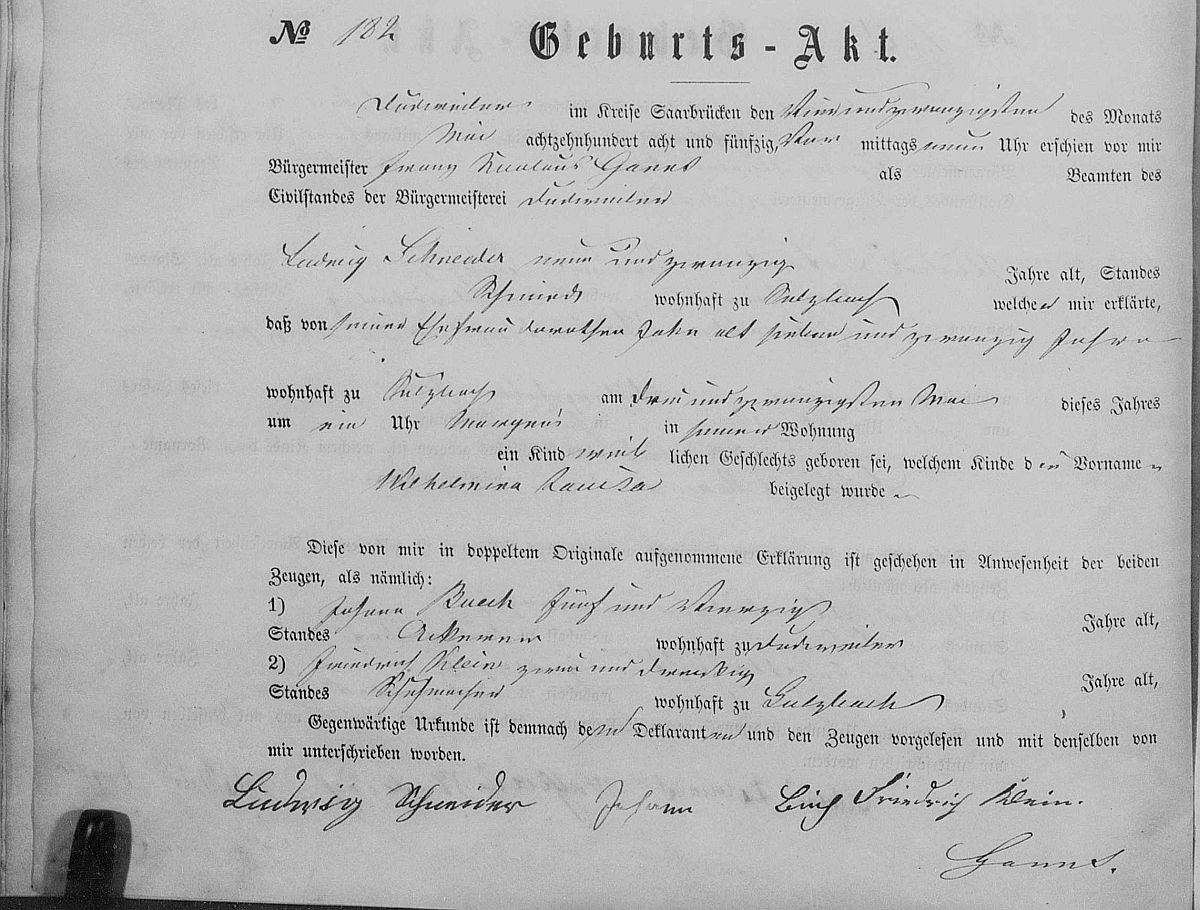 No 182 Geburts-Akt.
Dudweiler im Kreise Saarbrücken den Vierundzwanzigsten des Monats
Mai achtzehnhundert acht und fünfzig, Vor mittags neun Uhr erschien vor mir
Bürgermeister Franz Nicolaus als Beamten des
Civilstandes der Bürgermeisterei Dudweiler
Ludwig Schneider neun und zwanzig Jahre alt, Standes
Schmied wohnhaft zu Sulzbach welcher mir erklärte,
daß von seiner Ehefrau Dorothea Jahn alt sieben und zwanzig Jahre
wohnhaft zu Sulzbach am Drei und zwanzigsten Mai dieses Jahres
um ein Uhr Morgens in seiner Wohnung
ein Kind weib lichen Geschlechts geboren sei, welchem Kinde den Vornamen
Wilhelmina Louisa beigelegt wurde.
Diese von mir in doppeltem Originale aufgenommene Erklärung ist geschehen in Anwesenheit der beiden
Zeugen, als nämlich:
1) Johann fünf und Vierzig Jahre alt,
Standes Ackerer wohnhaft zu Dudweiler
2) Friedrich Klein zwei und Dreißig Jahre alt,
Standes Schuhmacher wohnhaft zu Sulzbach
Gegenwärtige Urkunde ist demnach dem Deklaranten und den Zeugen vorgelesen und mit denselben von
mir unterschrieben worden.
Ludwig Schneider Johann Friedrich Klein.